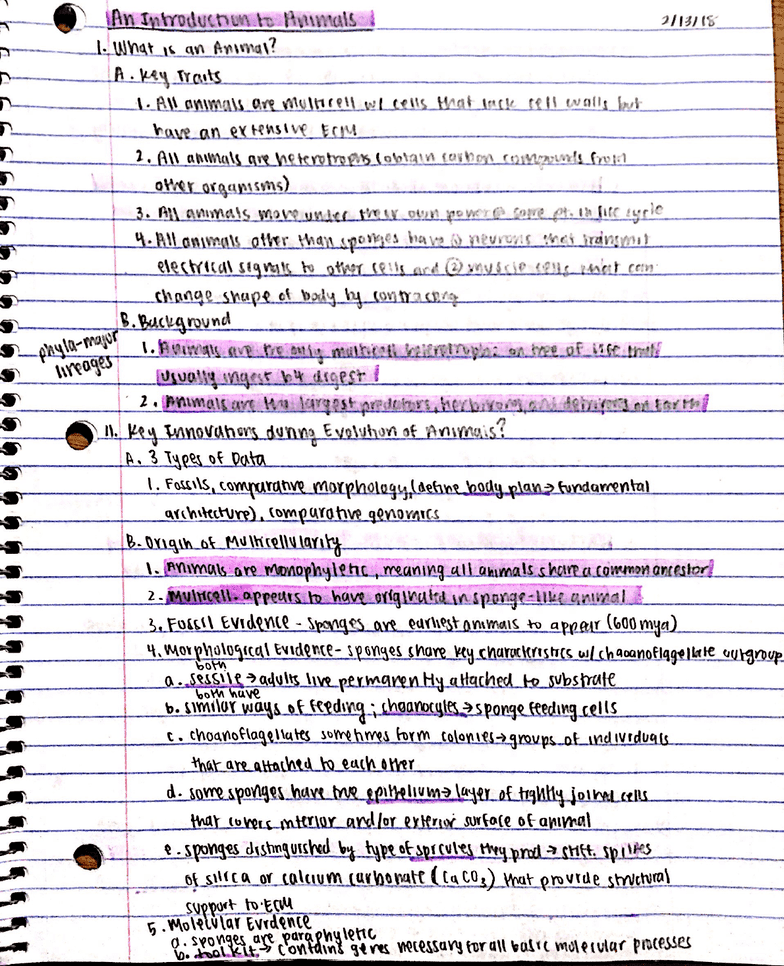 An Introduction to Animals 2/13/18
1. What is an Animal?
A. Key Traits
1. All animals are multicell w/ cells that lack cell walls but
have an extensive ECM
2. All animals are heterotrophs (obtain carbon compounds from
other organisms)
3. All animals move under their own power @ some pt. in life cycle
4. All animals other than sponges have ① neurons that transmit
electrical signals to other cells and ② muscle cells that can
change shape of body by contracting
B. Background
phyla-major
lineages
1. Animals are the only multicell heterotrophs on tree of life that
usually ingest b4 digest
2. Animals are the largest predators, herbivores, and detrivores on Earth
11. Key Innovations during Evolution of Animals?
A. 3 Types of Data
1. Fossils, comparative morphology, (define body plan → fundamental
architecture), comparative genomics
B. Origin of Multicellularity
1. Animals are monophyletic, meaning all animals share a common ancestor
2. Multicell. appears to have originated in sponge-like animal
3. Fossil Evidence - Sponges are earliest animals to appear (600 mya)
4. Morphological Evidence - sponges share key characteristics w/ choanoflagellate outgroup
both
a. sessile → adults live permanently attached to substrate
both have
b. similar ways of feeding; choanocytes → sponge feeding cells
c. choanoflagellates sometimes form colonies → groups of individuals
that are attached to each other
d. some sponges have true epithelium → layer of tightly joined cells
that covers interior and/or exterior surface of animal
e. sponges distinguished by type of spicules they prod → stiff spikes
of silica or calcium carbonate (CaCO₃) that provide structural
support to ECM
5. Molecular Evidence
a. sponges are paraphyletic
b. tool kit → contains genes necessary for all basic molecular processes